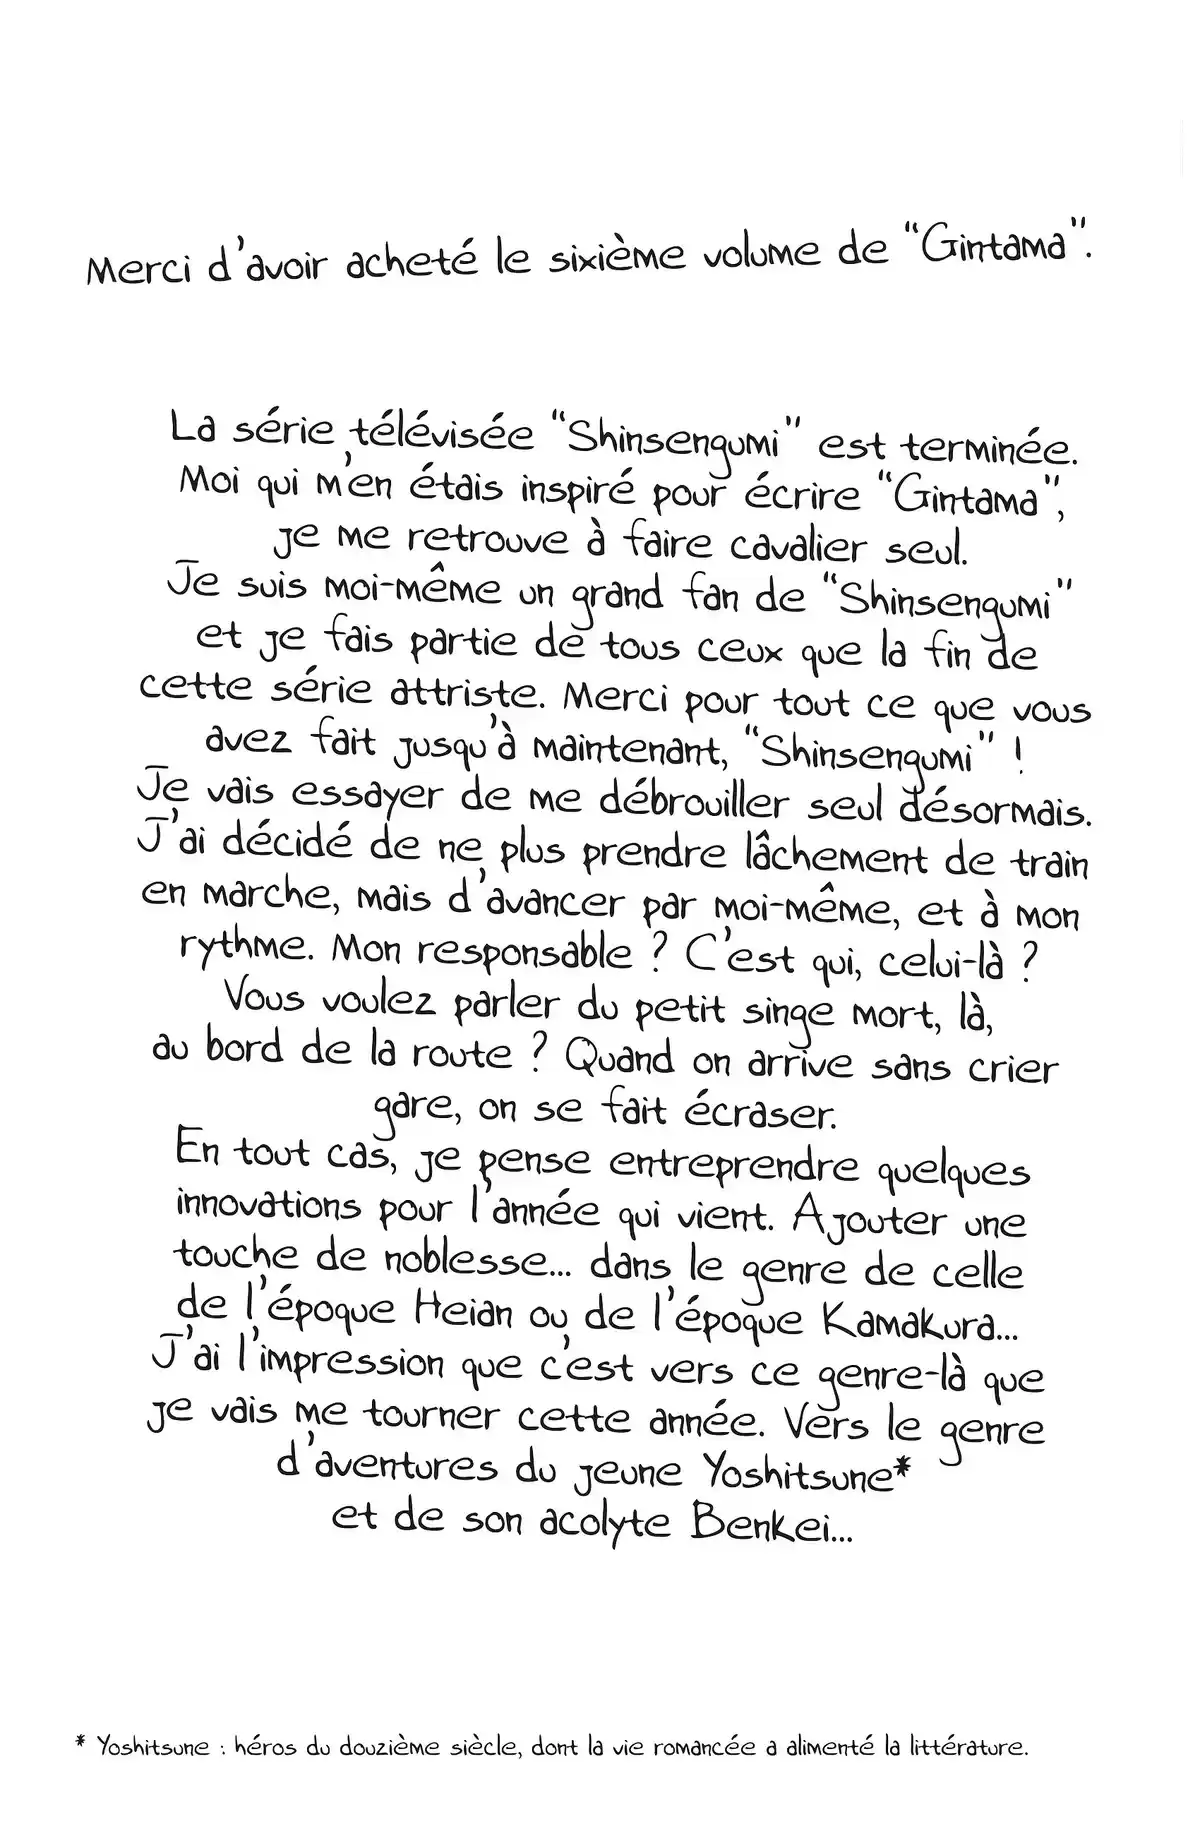 Merci d'avoir acheté le sixième volume de "Gintama".
La série télévisée "Shinsengumi" est terminée.
Moi qui m'en étais inspiré pour écrire "Gintama",
je me retrouve à faire cavalier seul.
Je suis moi-même un grand fan de "Shinsengumi"
et je fais partie de tous ceux que la fin de
cette série attriste. Merci pour tout ce que vous
avez fait jusqu'à maintenant, "Shinsengumi" !
Je vais essayer de me débrouiller seul désormais.
J'ai décidé de ne plus prendre lâchement de train
en marche, mais d'avancer par moi-même, et à mon
rythme. Mon responsable ? C'est qui, celui-là ?
Vous voulez parler du petit singe mort, là,
au bord de la route ? Quand on arrive sans crier
gare, on se fait écraser.
En tout cas, je pense entreprendre quelques
innovations pour l'année qui vient. Ajouter une
touche de noblesse... dans le genre de celle
de l'époque Heian ou de l'époque Kamakura...
J'ai l'impression que c'est vers ce genre-là que
je vais me tourner cette année. Vers le genre
d'aventures du jeune Yoshitsune*
et de son acolyte Benkei...
* Yoshitsune : héros du douzième siècle, dont la vie romancée a alimenté la littérature.